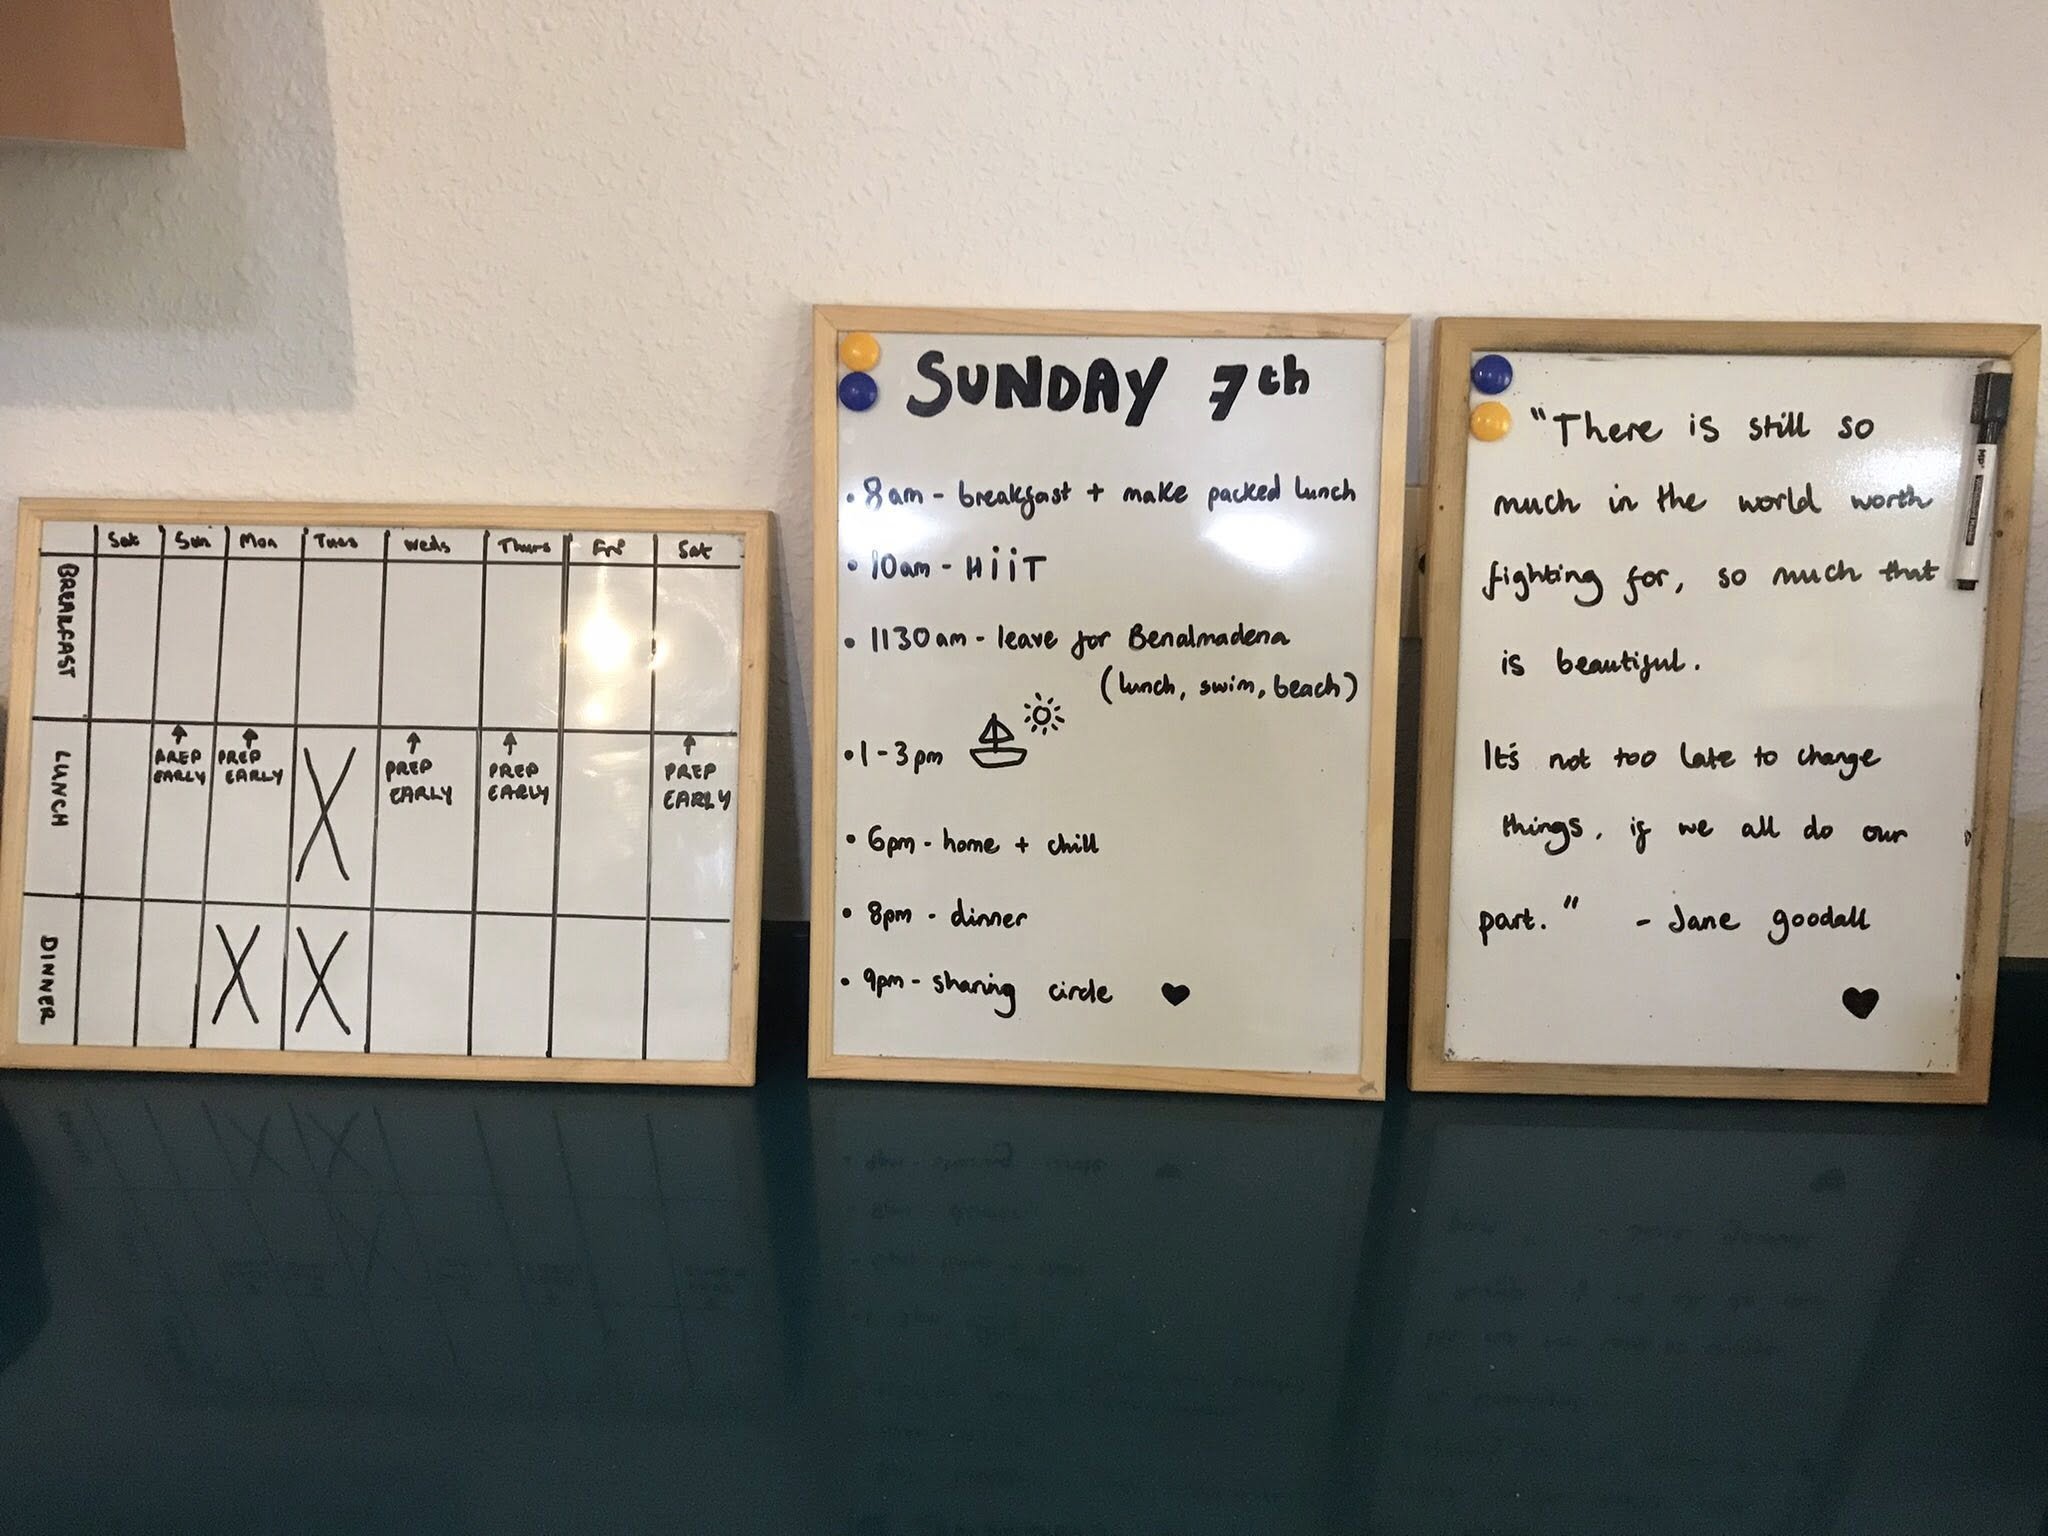 Sat Sun Mon Tues Weds Thurs Fri Sat
BREAKFAST
LUNCH
PREP EARLY
PREP EARLY
PREP EARLY
PREP EARLY
PREP EARLY
DINNER
SUNDAY 7th
• 8am - breakfast + make packed lunch
• 10am - HiiT
• 1130am - leave for Benalmadena
(lunch, swim, beach)
• 1-3pm
• 6pm - home + chill
• 8pm - dinner
• 9pm - sharing circle
"There is still so
much in the world worth
fighting for, so much that
is beautiful.
It's not too late to change
things, if we all do our
part." - Jane goodall